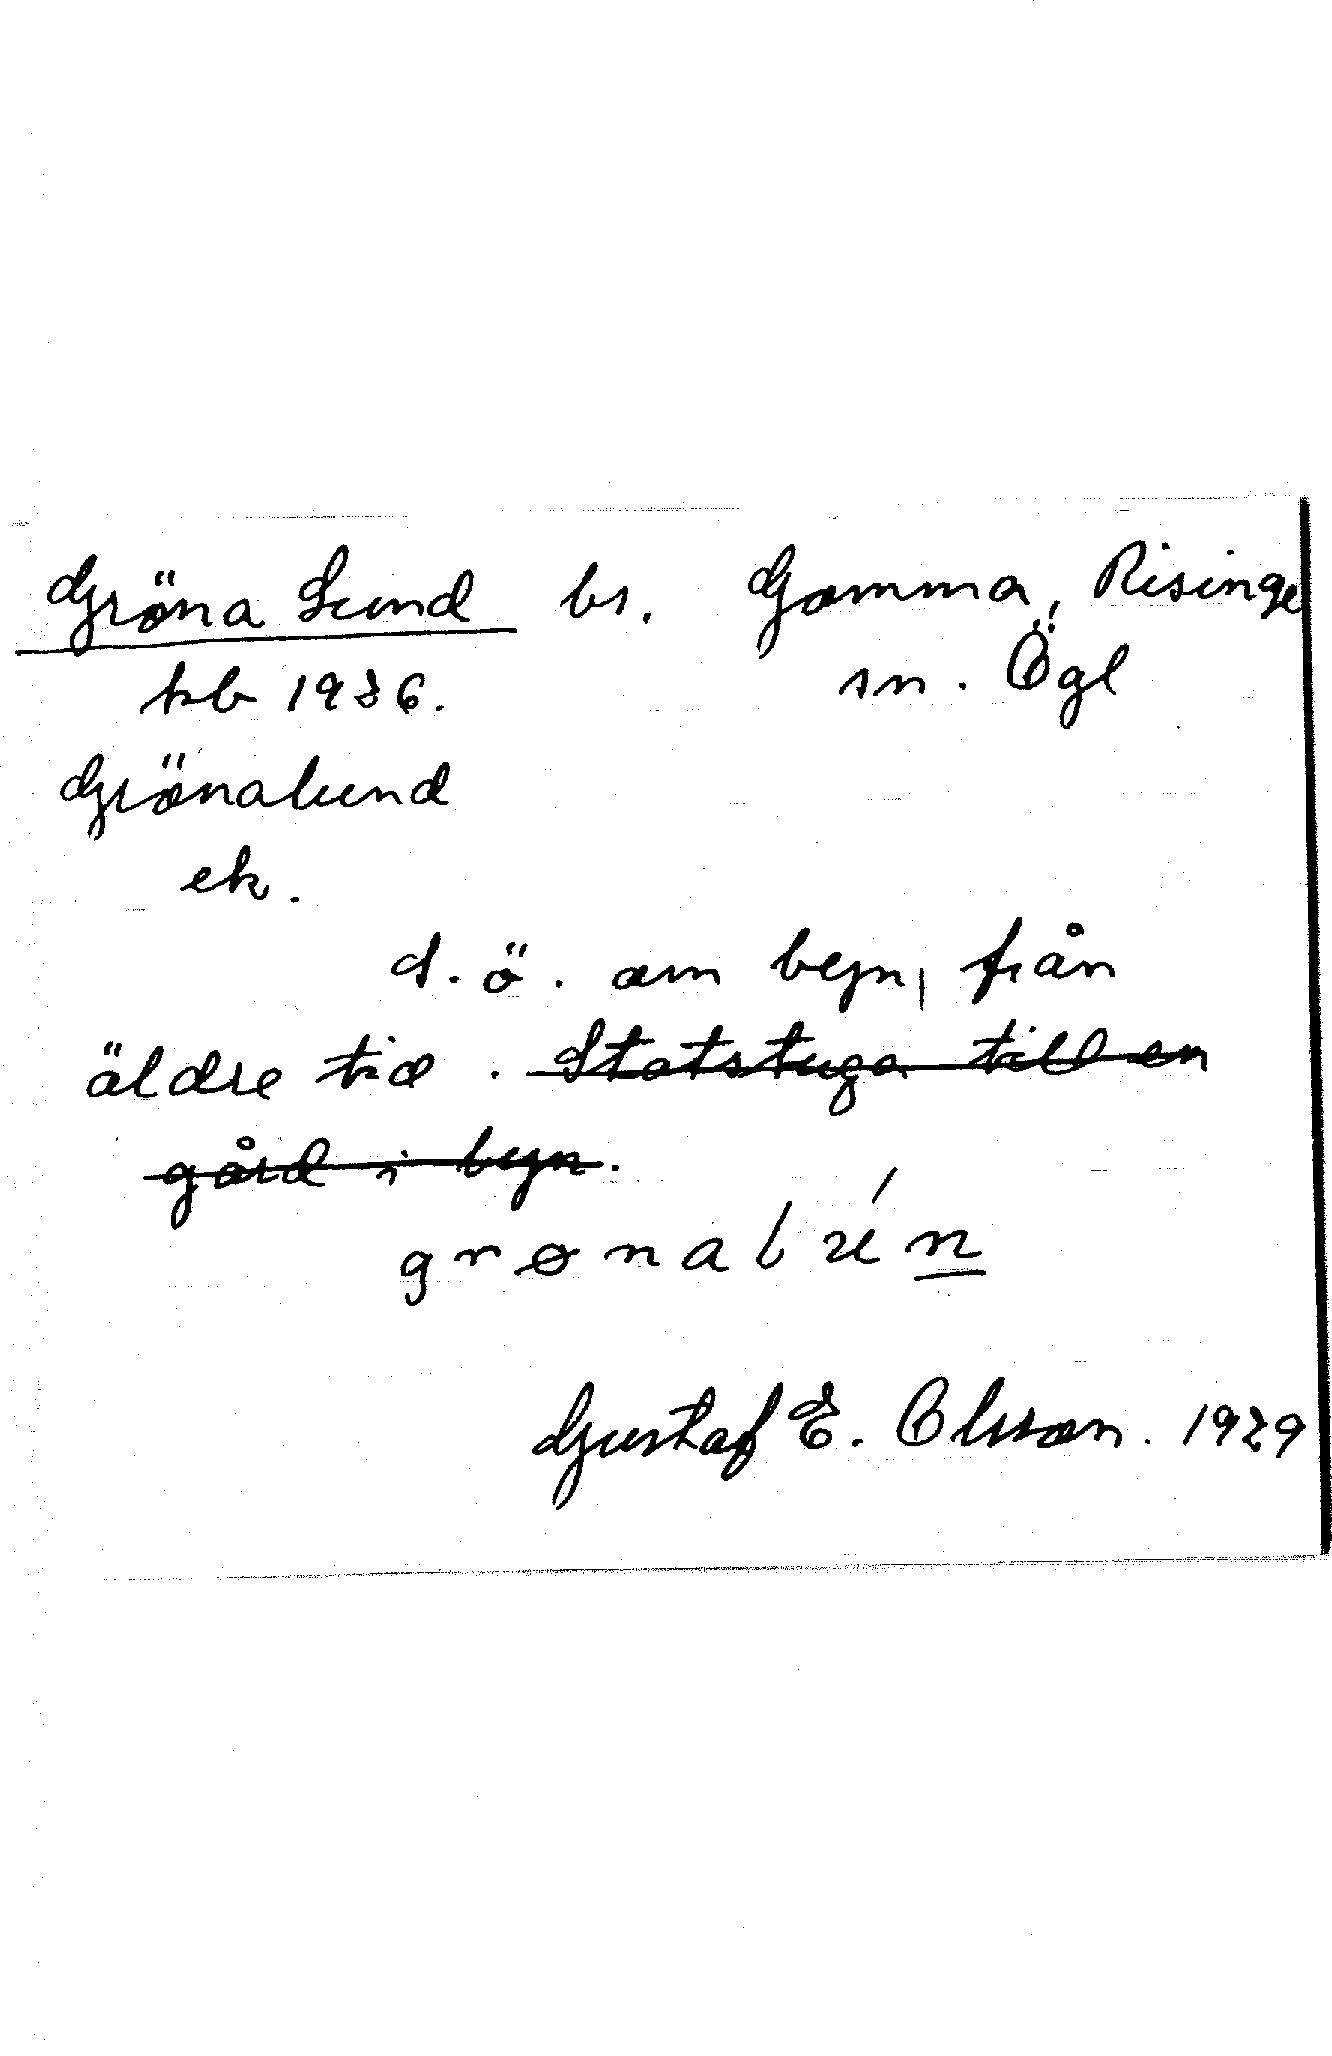 Gröna Lund bs. Gomma, Risinge
kb 1936. sn. Ögl
Grönalund
ek.
d. ö. om byn, från
äldre tid. Statstuga till en
gård i byn.
Gustaf E. Olsson. 1929